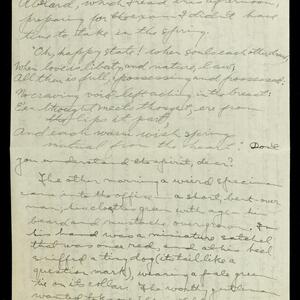 Abelard, which I read this afternoon,
preparing for the exam I didn't have
time to take in the spring.
"Oh, happy state! when souls each other draw,
When love is liberty, and nature, law;
All then is full, possessing and possessed,
No craving void left aching in the breast:
Ev'n thought meets thought, ere from
the lips it part,
And each warm wish springs
mutual from the heart." Don't
you understand the spirit, dear?
The other morning a weird specimen
came into the office - a short, bent-over
man, in clothes green with age, his
beard and mustache overgrown. In
his hand was a miniature satchel
that was once red, and at his heel
sniffed a tiny dog (its tail like a
question mark), wearing a pale green
tie on its collar. The worthy gentleman
wanted to